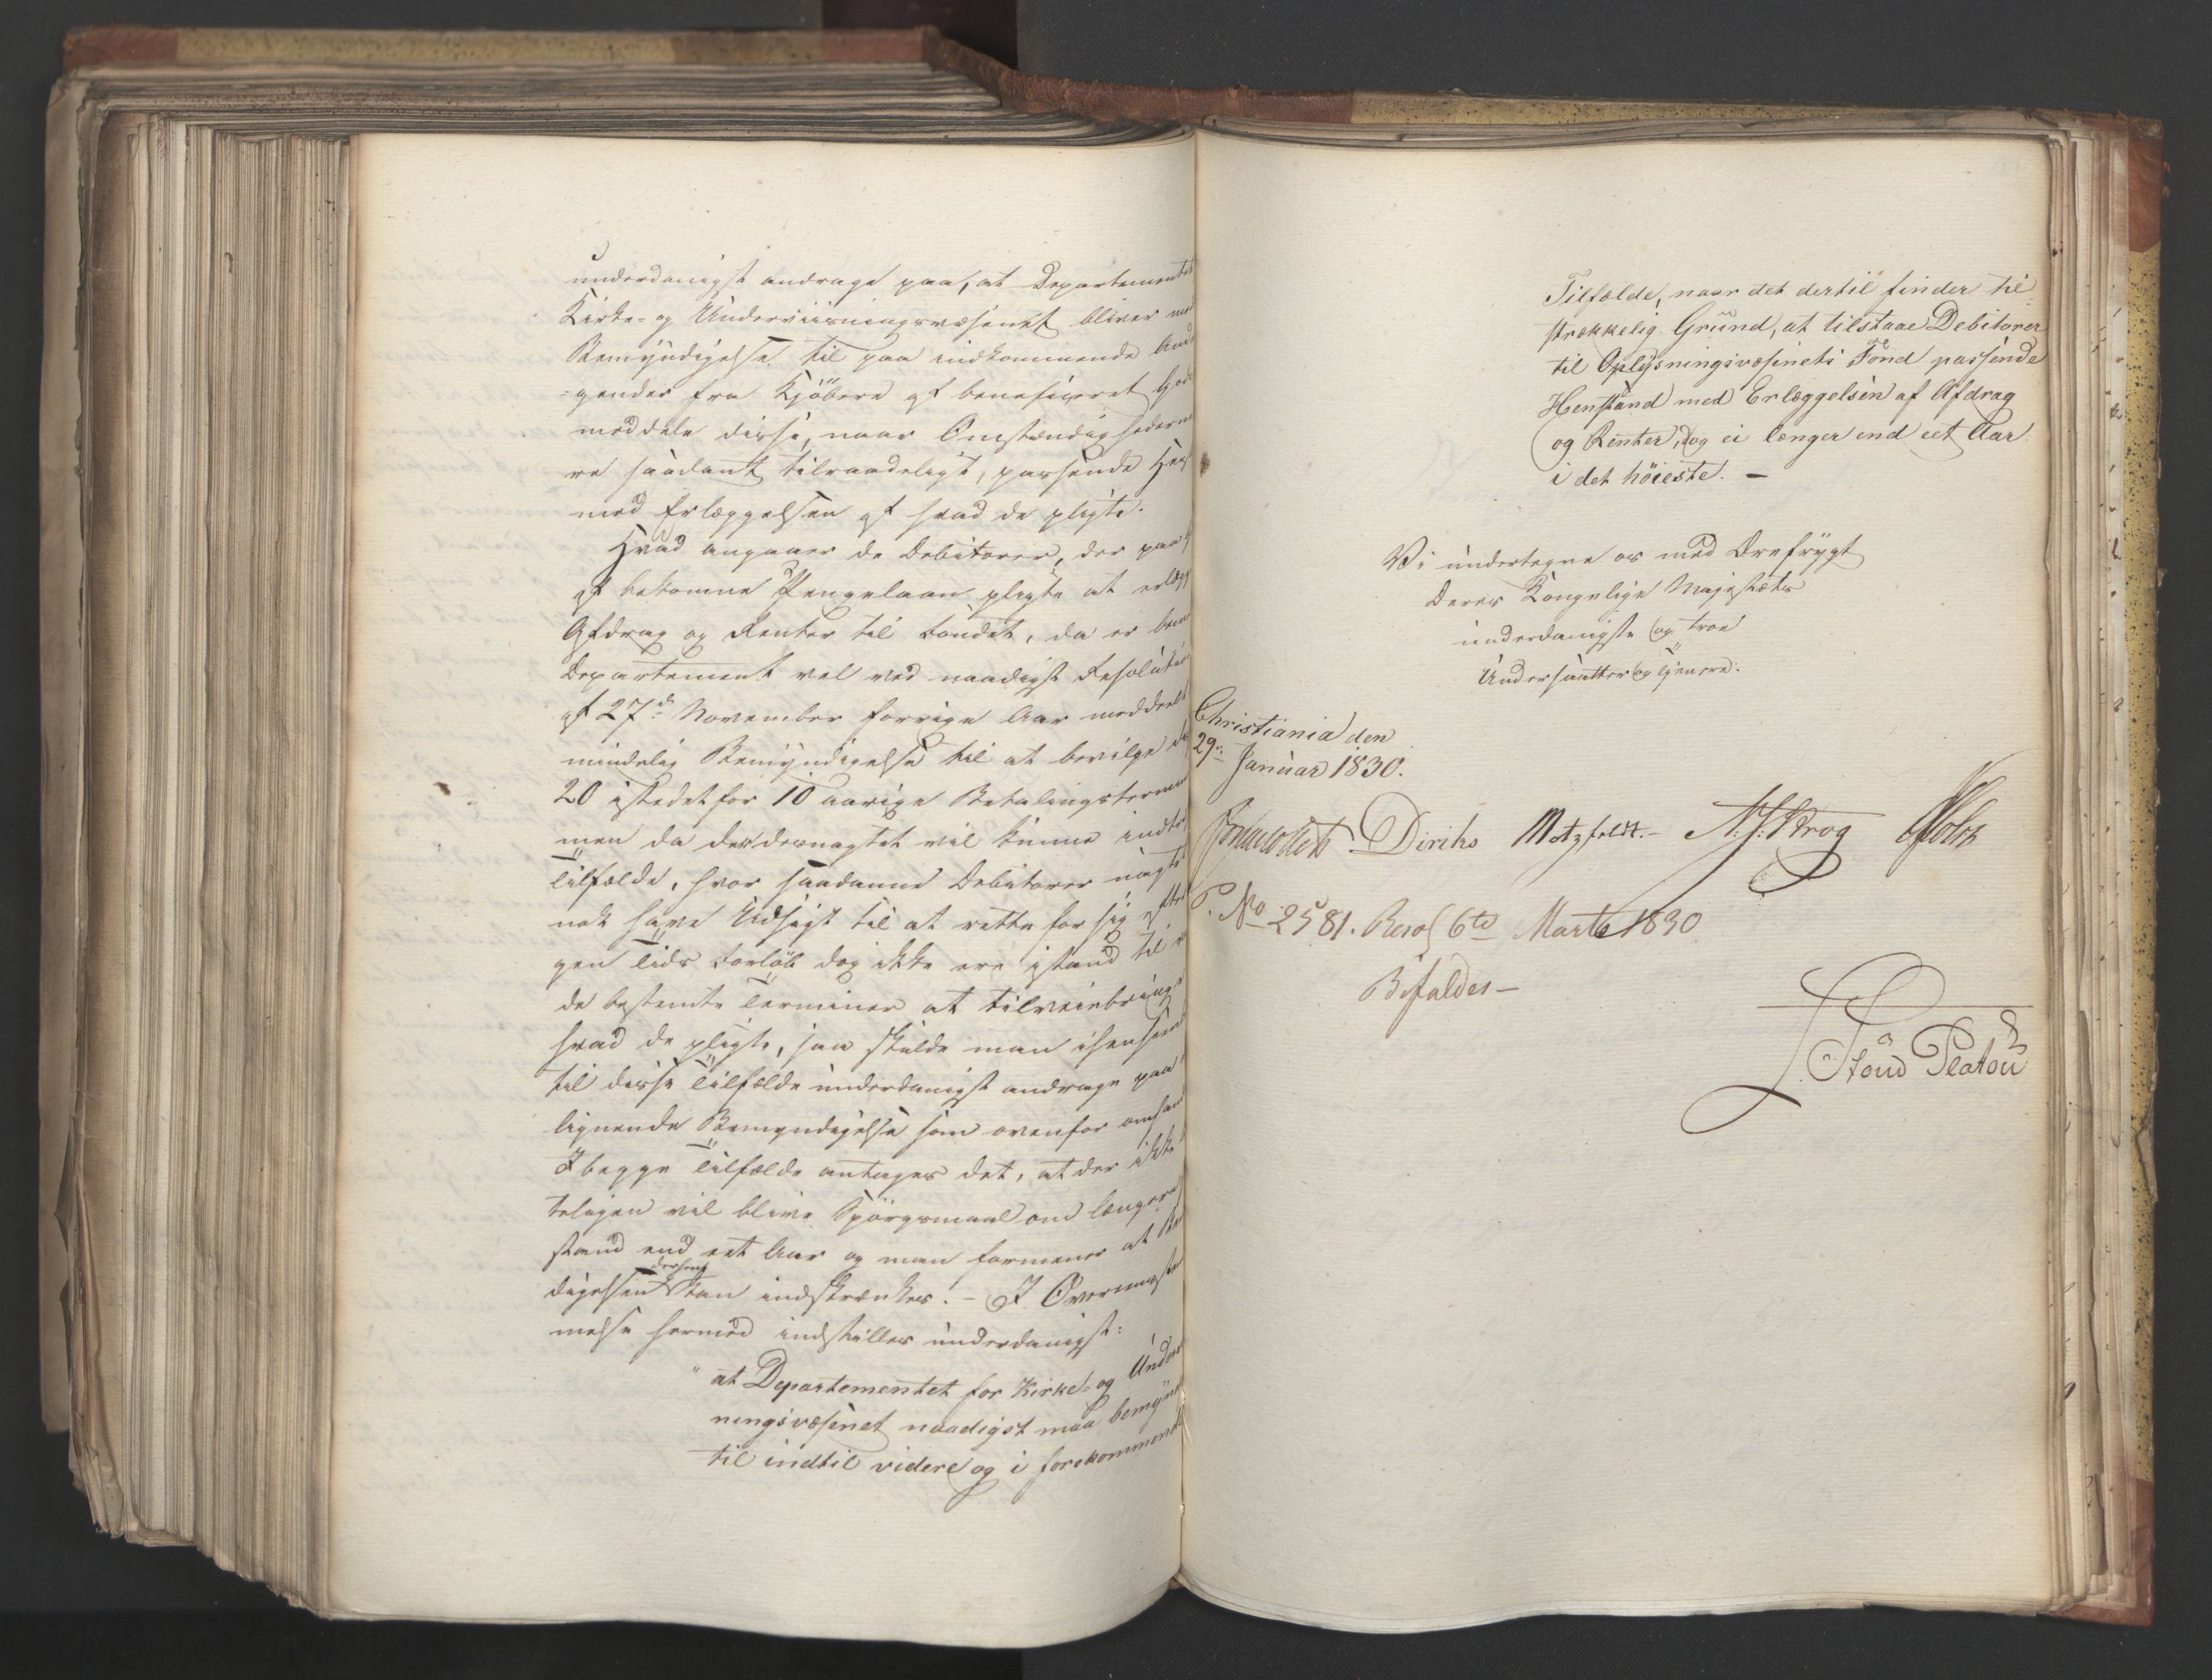 underdanigst andrage paa, at Departementet
Kirke- og Underviisningsvæsenet bliver med
Bemyndigelse til paa indkommende And
-gender fra Kjöbere af beneficeret Gods
meddele disse, naar Omstændighederne
re saadant tilraadeligt, passende Hen
med Erlæggelsen af hvad de pligte.
Hvad angaaer de Debitorer, der paa
af bekomne Pengelaan pligte at erlægg
Afdrag og Renter til Fondet, da er bem
Departement vel ved naadigst Resolution
af 27de November forrige Aar meddeelt
mindelig Bemyndigelse til at bevilge
20 istedetfor 10 aarige Betalingsterminer
men da der desuagtet vil kunne indtr
Tilfælde, hvor saadanne Debitorer
nok have Udsigt til at rette for sig efter
gen Tids Forløb dog ikke ere istand til
de bestemte Terminer at tilveiebringe
hvad de pligte, saa skulde man ihenseend
til disse Tilfælde underdanigst andrage paa
lignende Bemyndigelse som ovenfor omhan
I begge Tilfælde antages det, at der ikke
teligen vil blive Spörgsmaal om længere
stand end eet Aar og man formener at Be
digelsen dertil kan indskrænkes. - I Overeenste
melse hermed indstilles underdanigst:
" at Departementet for Kirke- og Under
ningsvæsenet naadigst maa bemyn
til indtil videre og i forekommende
Tilfælde, naar det dertil finder til-
strækkelig Grund, at tilstaae Debitorer
til Oplysningsvæsenets Fond passende
Henstand med Erlæggelsen af Afdrag
og Renter, dog ei længer end eet Aar
i det höieste. -
Vi undertegne os med Ærefrygt
Deres Kongelige Majestæts
underdanigste og troe
Undersaatter og tjenere.
Christiania den
29de Januar 1830.
Diriks Motzfeldt. - N. J. Krog Holst
P. No 2581. Resol 6te Marts 1830
Bifaldes -
Stoud Platou